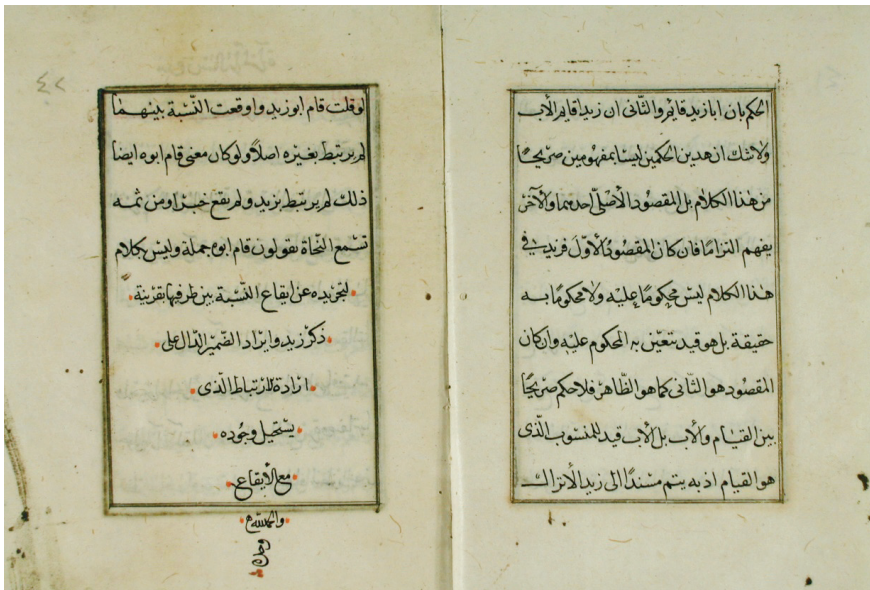 الحكم بان ابا زيد قايم والثانى ان زيدا قايم الأب
ولا شك ان هذين الحكمين ليسا بمفهومين صريحًا
من هذا الكلام بل المقصود الأصلىّ احدهما والآخر
يفهم التزامًا فان كان المقصود الأوّل فزيد فى
هذا الكلام ليس محكومًا عليه ولا محكومًا به
حقيقة بل هو قيد يتعيّن به المحكوم عليه وان كان
المقصود هو الثانى كما هو الظّاهر فلا حكم صريحًا
بين القيام والأب بل الأب قيد للمنسوب الّذى
هو القيام اذ به يتم مسندًا الى زيد الا تراك
لو قلت قام ابو زيد واوقعت النّسبة بينهما
لم يرتبط بغيره اصلاً ولو كان معنى قام ابوه ايضا
ذلك لم يرتبط بزيد ولم يقع خبرا ومن ثمه
تسمع النّحاة يقولون قام ابوه جملة وليس بكلام
لتجريده عن ايقاع النّسبة بين طرفيها بقرينة
ذكر زيد وايراد الضّمير الدّال على
ارادة الارتباط الّذى
يستحيل وجوده
مع الأيقاع
والحمد لله
وحده